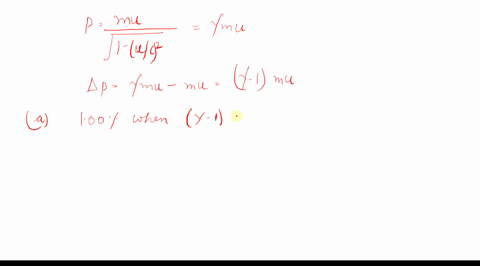 P = mu / √(1-(u/c)² = γmu
Δp = γmu - mu = (γ-1) mu
(a) 1.00% when (γ-1)